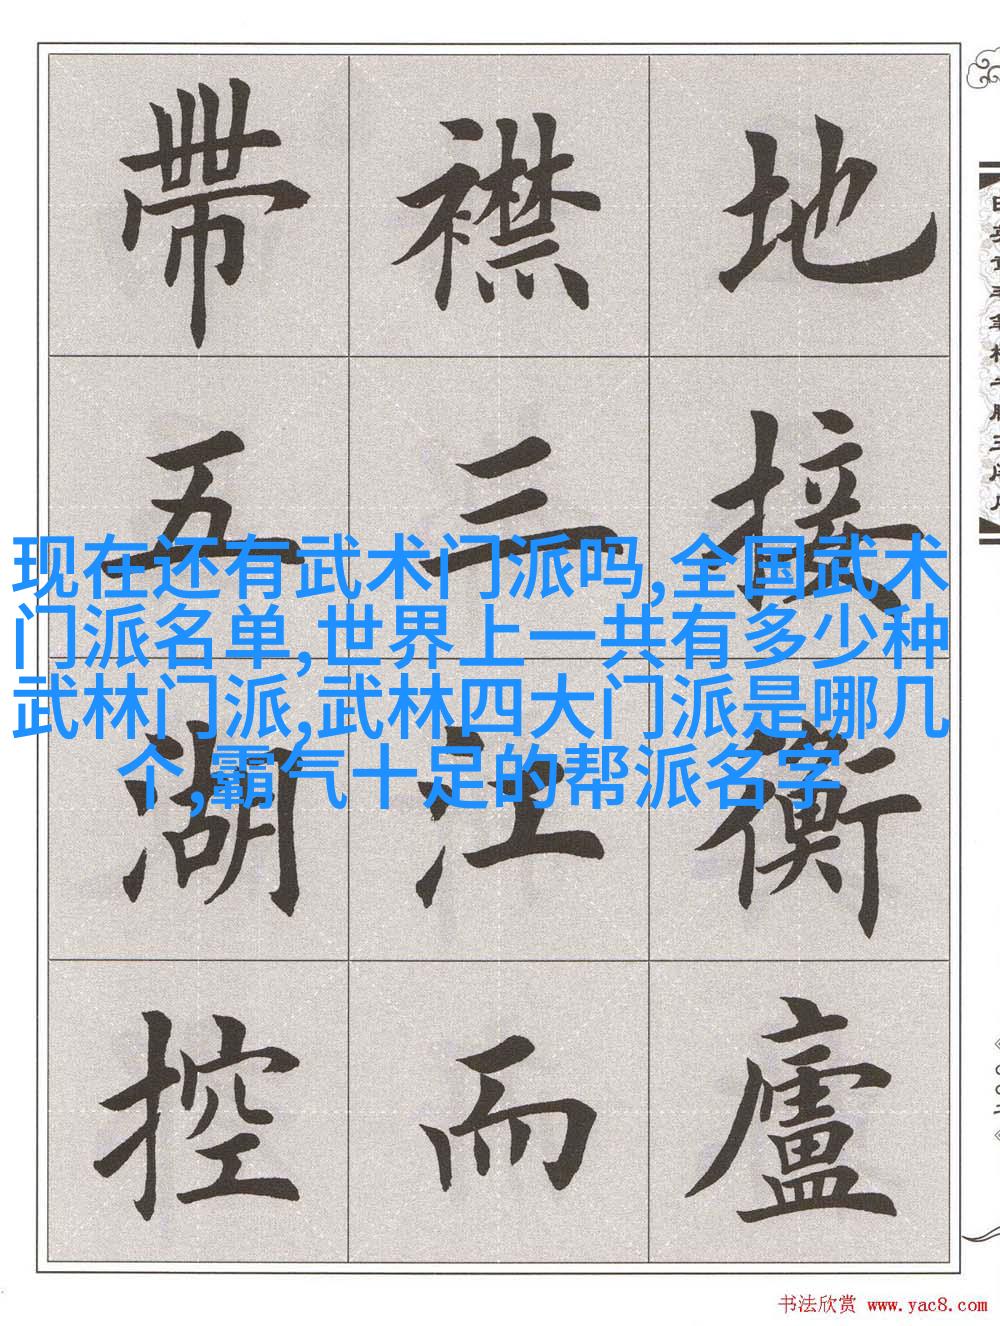 帶 襟 地
五 三 接
现在还有武术门派吗,全国武术
门派名单,世界上一共有多少种
武林门派,武林四大门派是哪几
个,霸气十足的帮派名字
湖 江 衡
控 而 廬
书法欣赏 www.yac8.com